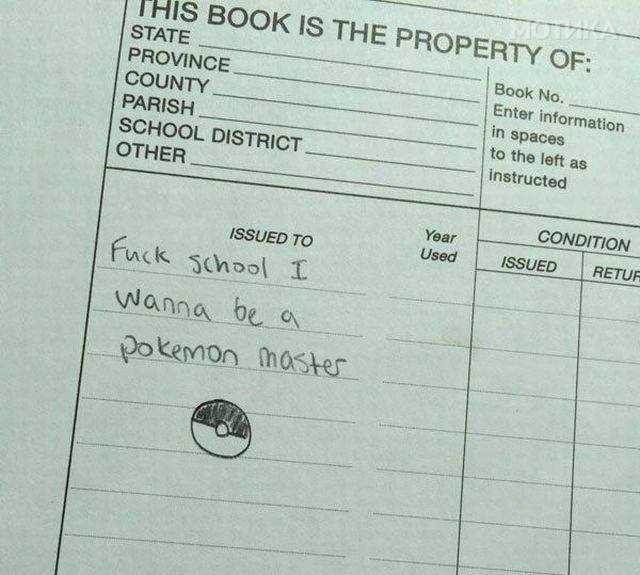 THIS BOOK IS THE PROPERTY OF:
STATE
PROVINCE
COUNTY
PARISH
SCHOOL DISTRICT
OTHER
Book No.
Enter information
in spaces
to the left as
instructed
ISSUED TO
Year
Used
CONDITION
ISSUED
RETUR
Fuck school I
wanna be a
pokemon master
МОТИКА